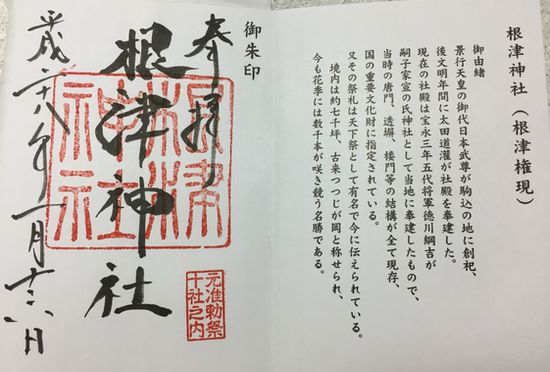 根津神社(根津権現)
御由緒
景行天皇の御代日本武尊が駒込の地に創祀、
後文明年間に太田道灌が社殿を奉建した。
現在の社殿は宝永三年五代将軍徳川綱吉が
嗣子家宣の氏神社として当地に奉建したもので、
当時の唐門、透塀、楼門等の結構が全て現存、
国の重要文化財に指定されている。
又その祭礼は天下祭として有名で今に伝えられている。
境内は約七千坪、古来つつじが岡と称せられ、
今も花季には数千本が咲き競う名勝である。
御朱印
奉拝
根津神社
根津
神社
元准勅祭
十社之内
平成二十八年一月十六日